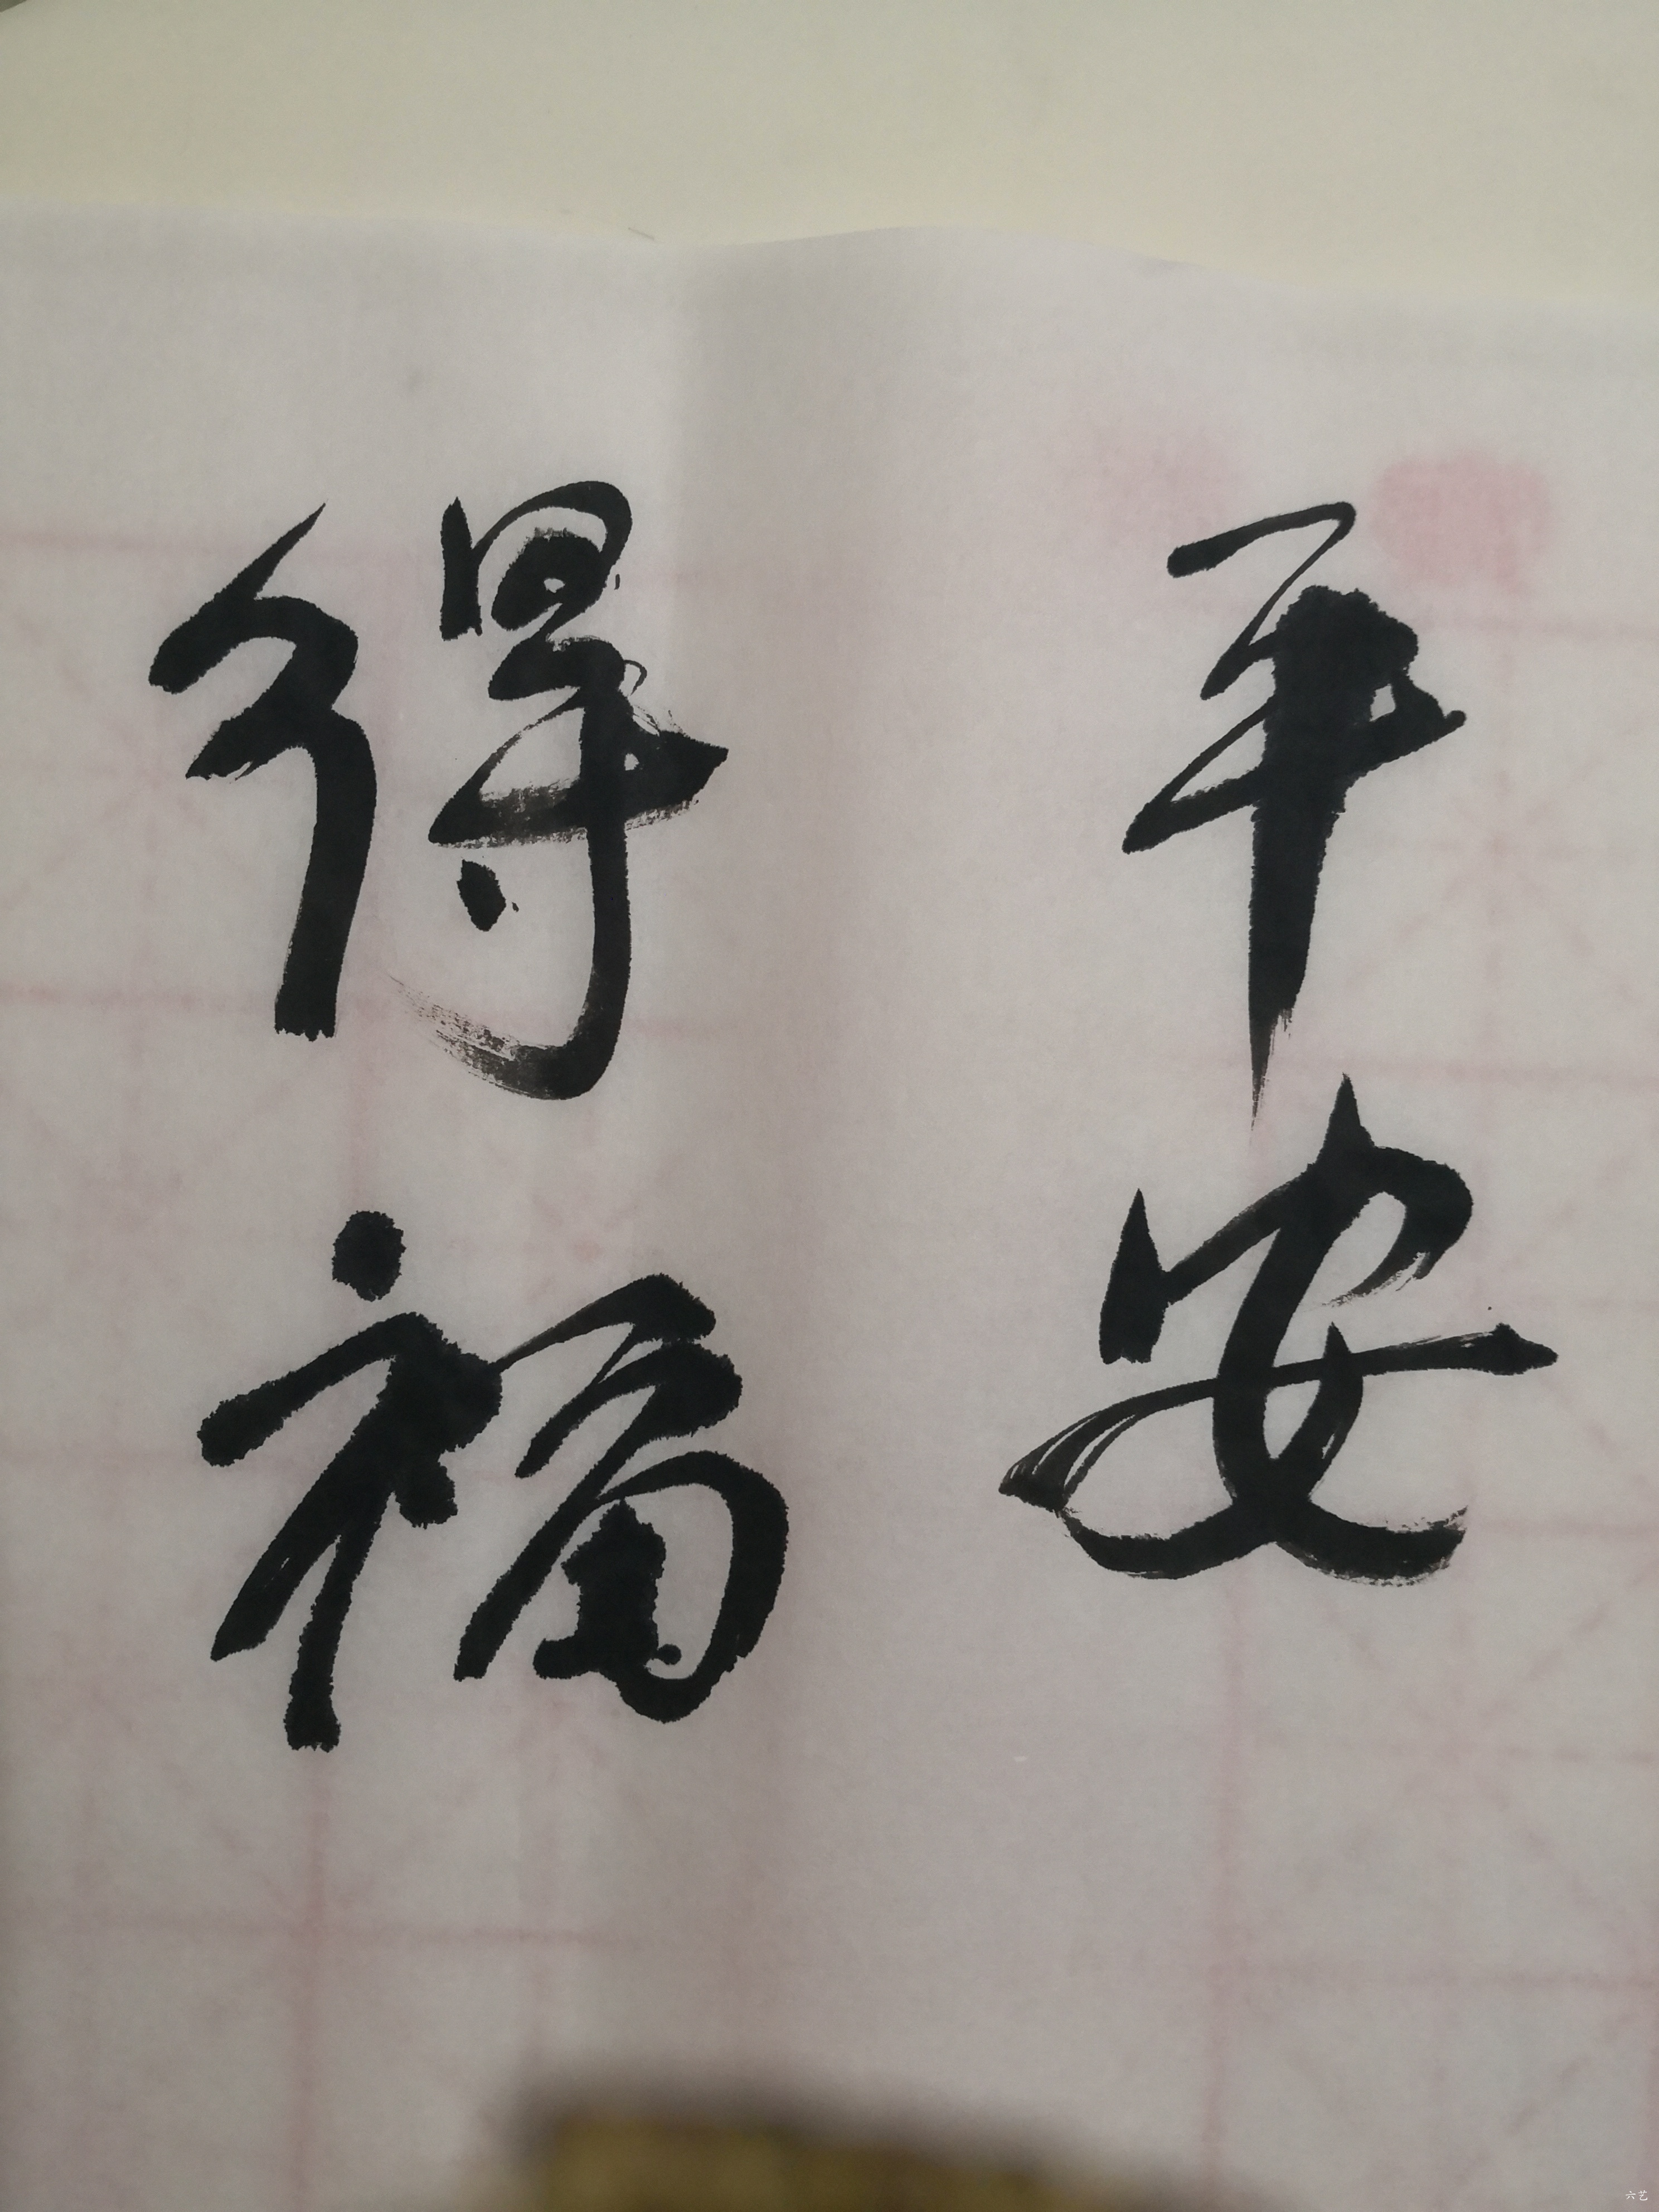 平安
得福
六艺